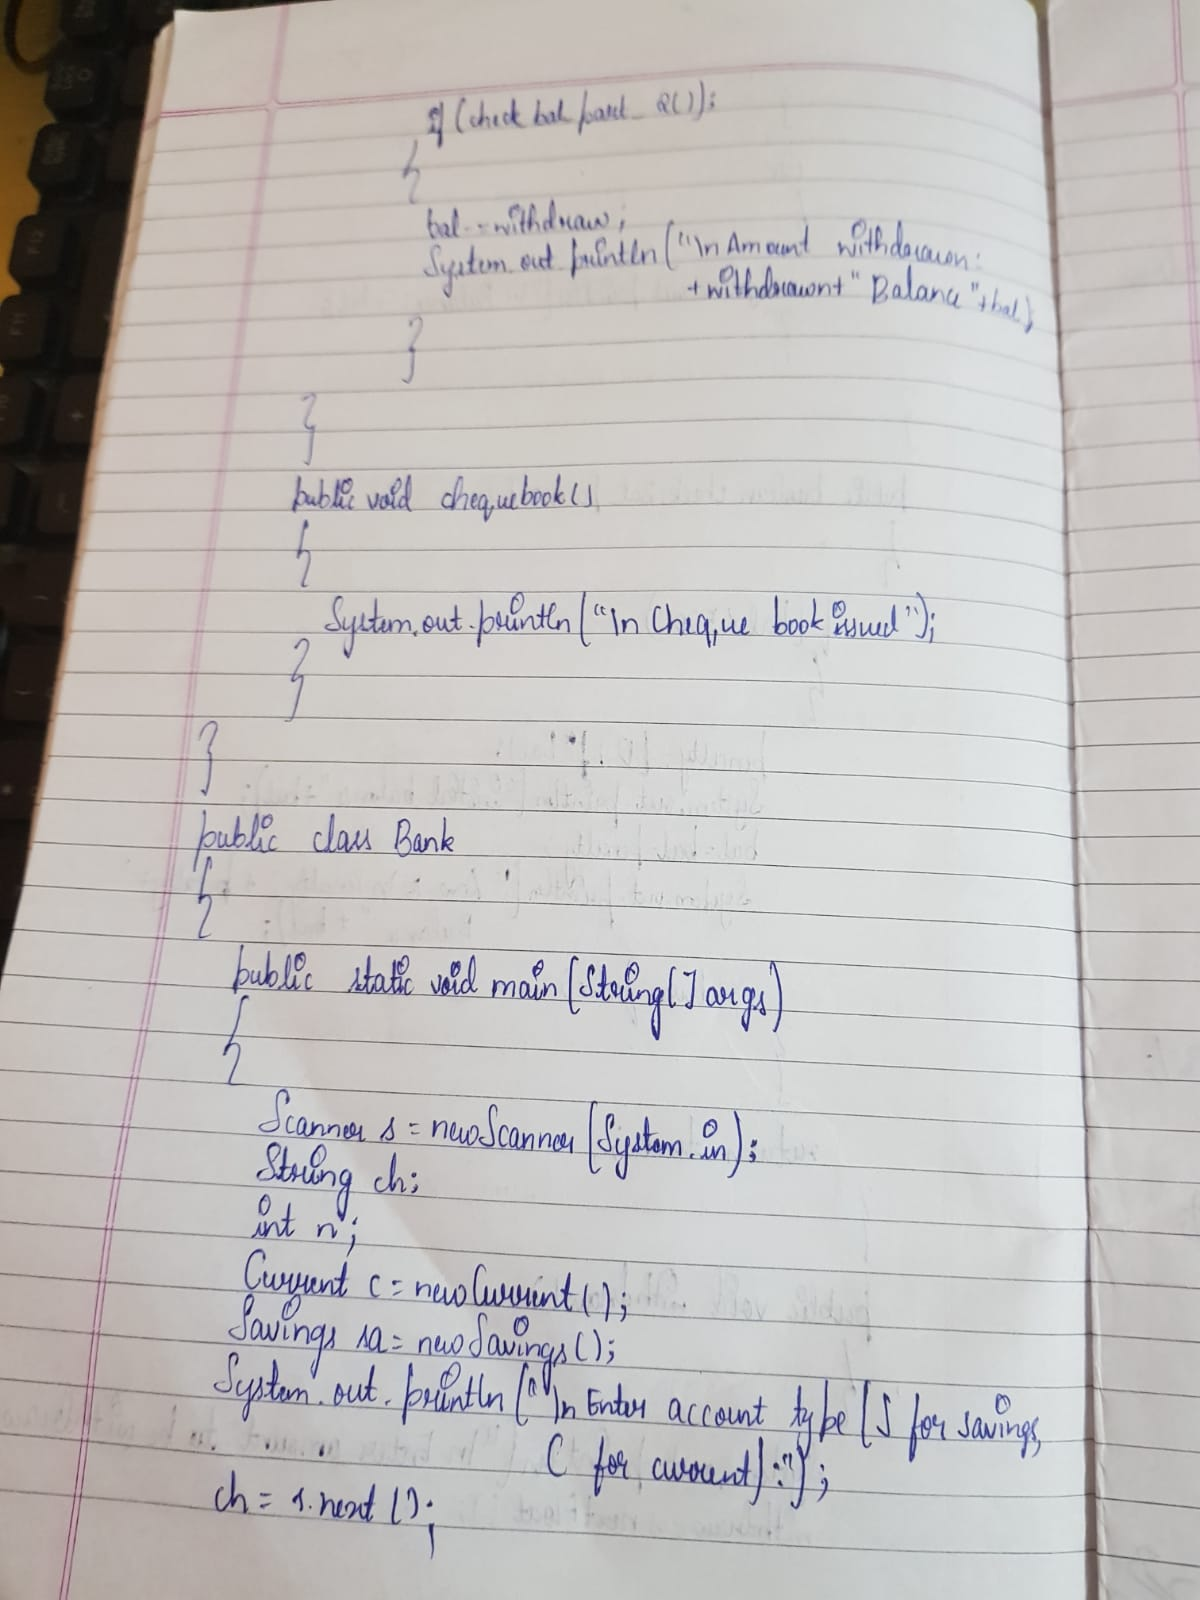 if (check bal part_2());
{
bal -= withdraw;
System.out.println("\n Amount withdrawn:
+withdrawn+" Balance "+bal);
}
}
public void chequebook()
{
System.out.println("\n Cheque book issued");
}
}
public class Bank
{
public static void main(String[] args)
{
Scanner s = newScanner(System.in);
String ch;
int n;
Current c = newCurrent();
Savings sa = newSavings();
System.out.println("\n Enter account type (S for savings,
C for current):");
ch = s.next();